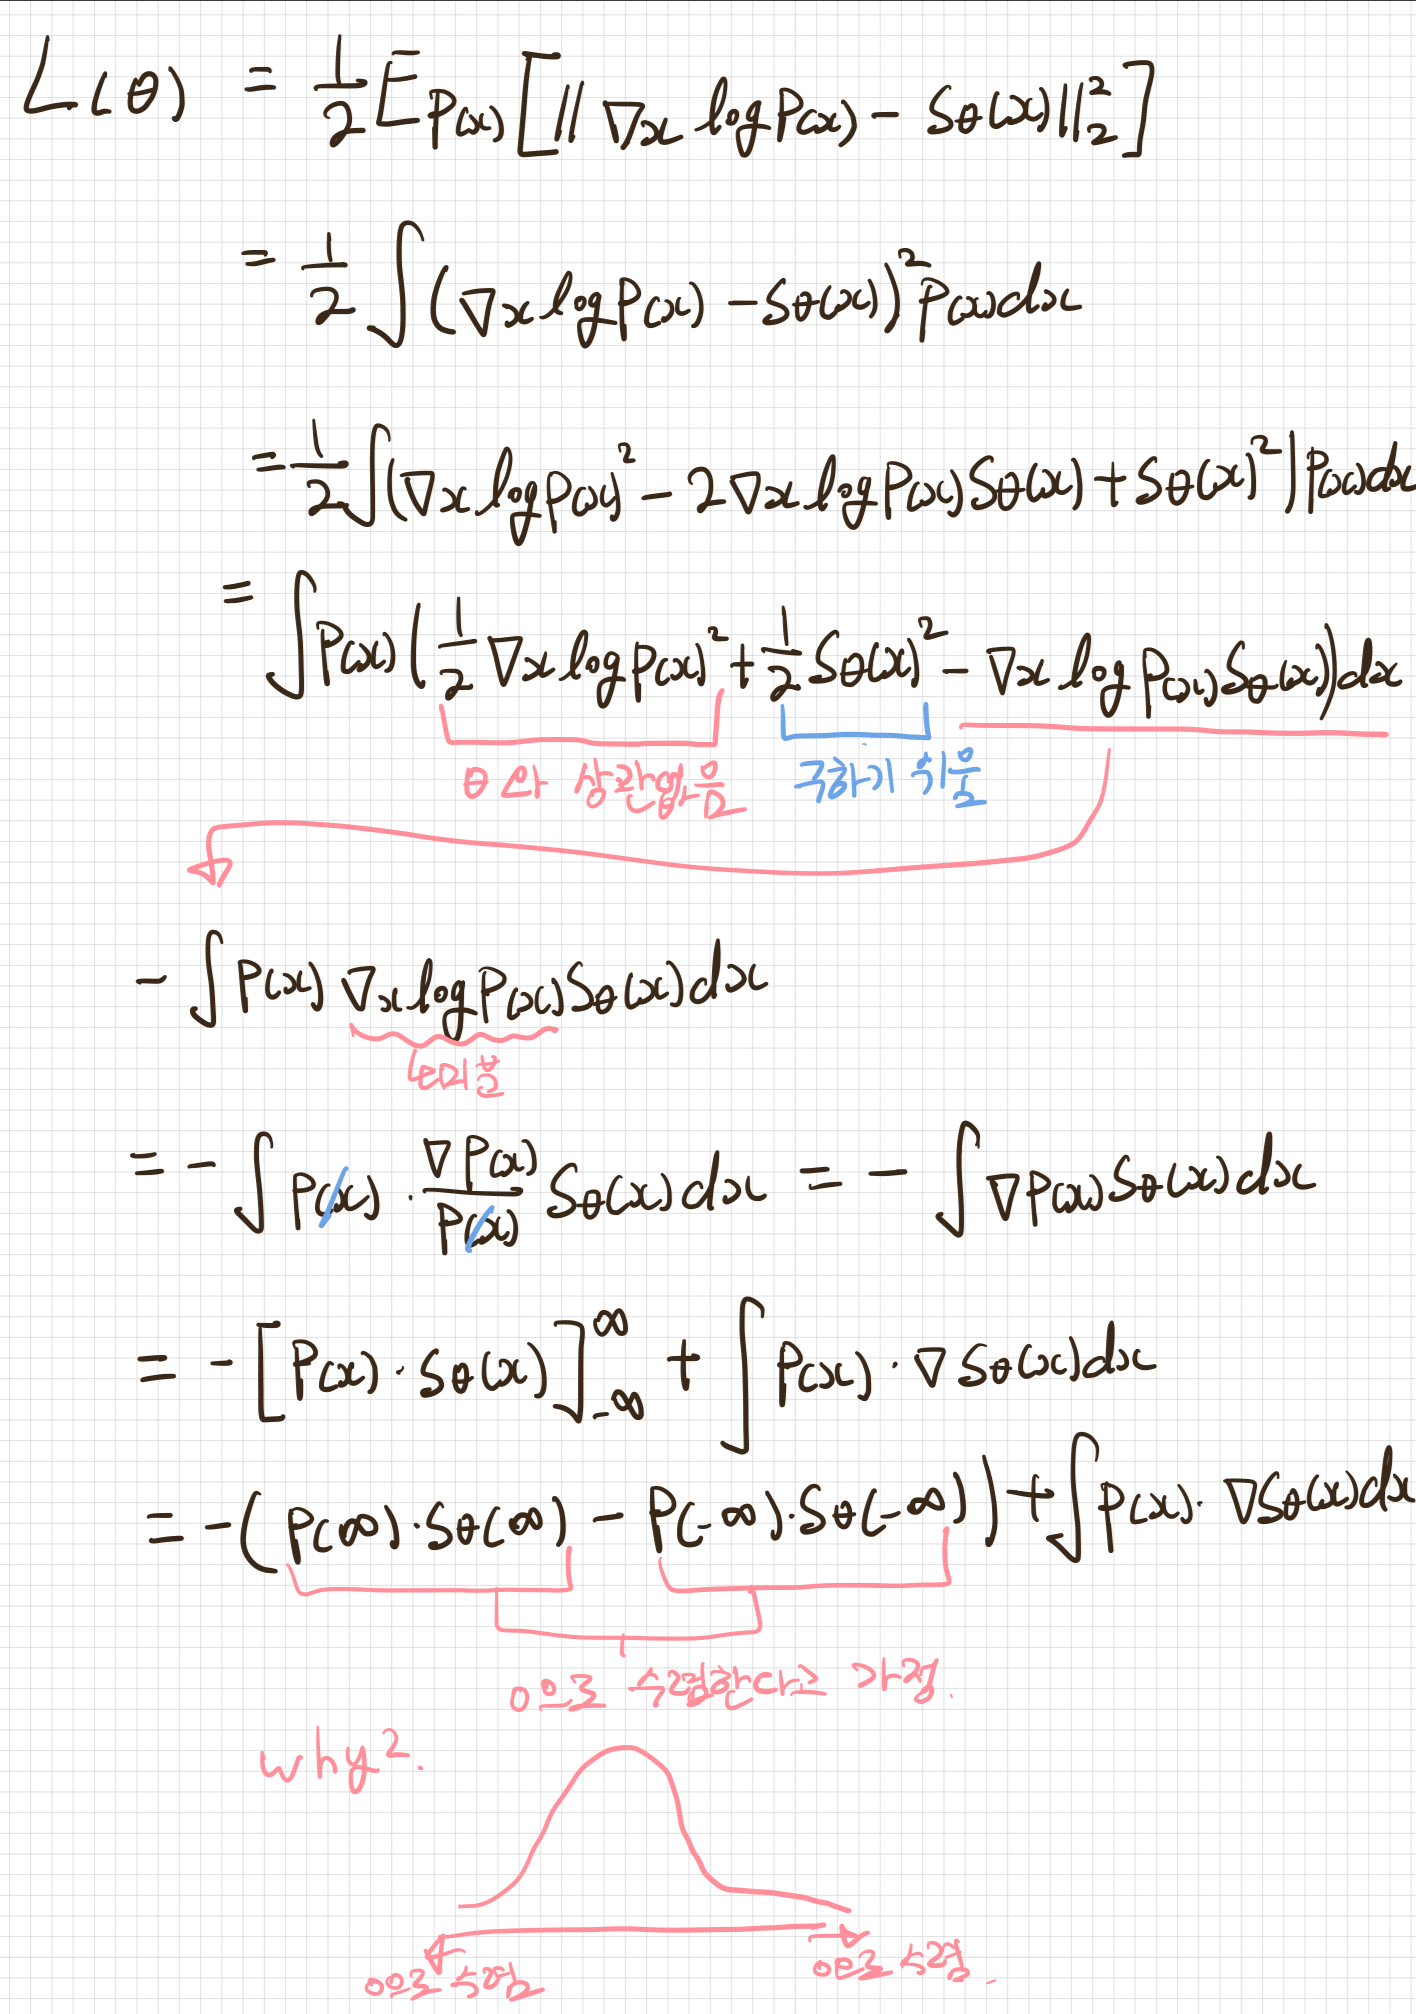 L(θ) = 1/2 E_P(x) [ || ∇x log P(x) - Sθ(x) ||₂² ]
= 1/2 ∫ (∇x log P(x) - Sθ(x))² P(x) dx
= 1/2 ∫ (∇x log P(x)² - 2∇x log P(x) Sθ(x) + Sθ(x)²) P(x) dx
= ∫ P(x) (1/2 ∇x log P(x)² + 1/2 Sθ(x)² - ∇x log P(x) Sθ(x)) dx
θ 와 상관없음 구하기 쉬움
- ∫ P(x) ∇x log P(x) Sθ(x) dx
미분
= - ∫ P(x) · ∇P(x)/P(x) Sθ(x) dx = - ∫ ∇P(x) Sθ(x) dx
= - [P(x) · Sθ(x)]_-∞^∞ + ∫ P(x) · ∇Sθ(x) dx
= - (P(∞) · Sθ(∞) - P(-∞) · Sθ(-∞)) + ∫ P(x) · ∇Sθ(x) dx
0으로 수렴한다고 가정.
why?
0으로 수렴 0으로 수렴.